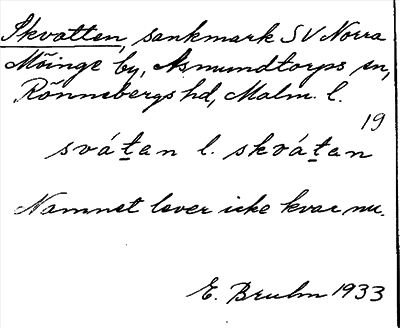 Skvatten, sankmark SV Norra
Möinge by, Asmundtorps sn,
Rönnebergs hd, Malm. l.
19
svátan l. skvátan
Namnet lever icke kvar nu.
E. Bruhn 1933